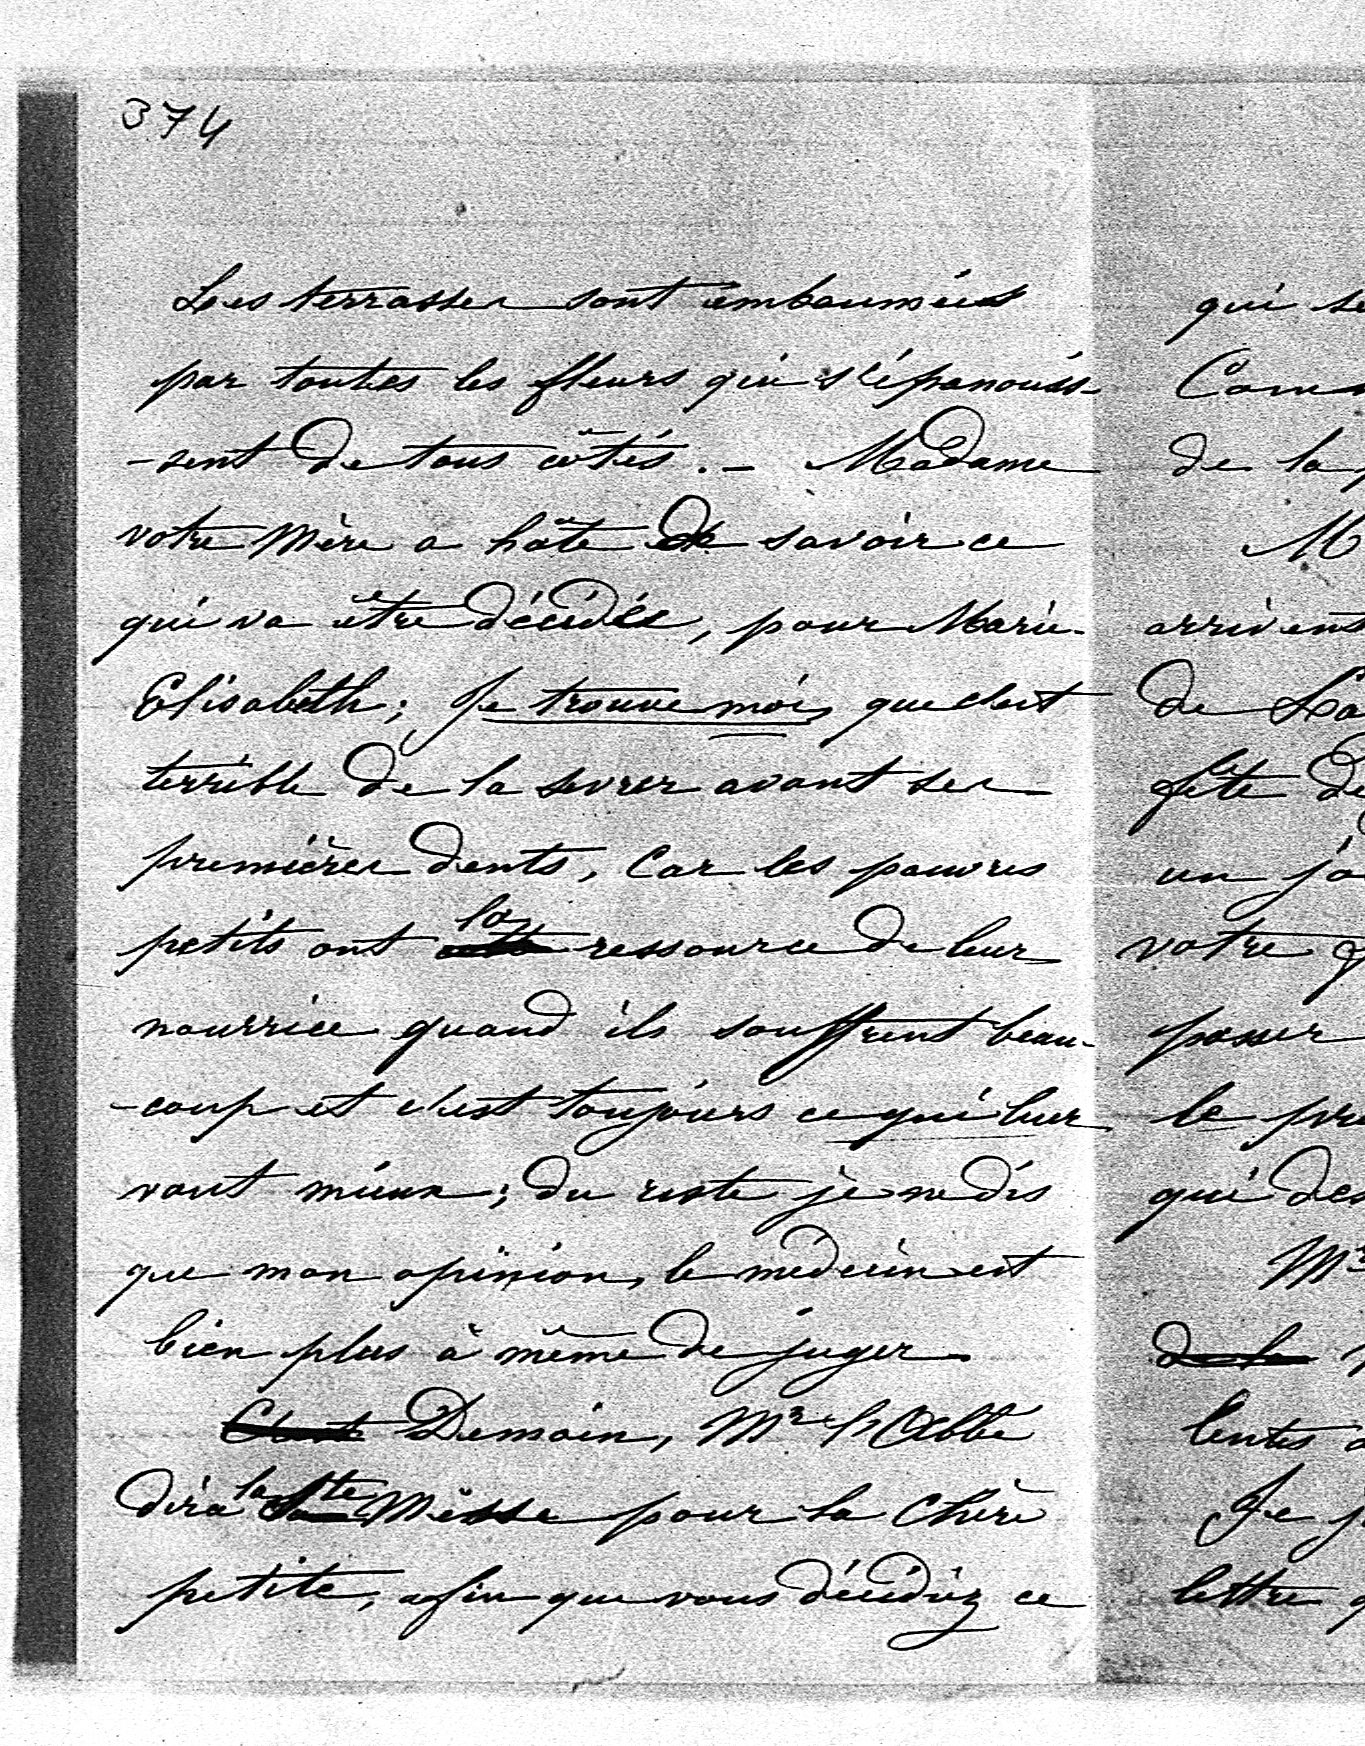 374
Les terrasses sont embaumées
par toutes les fleurs qui s'épanouis-
-sent de tous côtés. - Madame
votre Mère a hâte de savoir ce
qui va être décidé, pour Marie-
Elisabeth; Je trouve moi, que c'est
terrible de la sevrer avant ses
premières dents, Car les pauvres
petits ont la ressource de leur
nourrice quand ils souffrent beau-
-coup et c'est toujours ce qui leur
vaut mieux; du reste je ne dis
que mon opinion, le médecin est
bien plus à même de juger.
Demain, Mr l'Abbé
dira la Ste Messe pour la Chère
petite, afin que vous décidiez ce
qui
de la
M
arrivent
de
fête de
un
votre
passer
le
qui
de la
lentes
Je
lettre